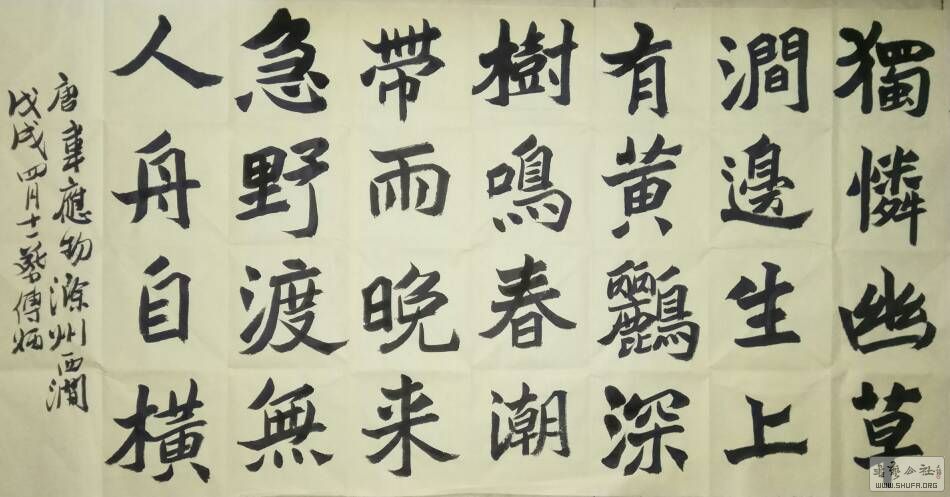 獨憐幽草
澗邊生上
有黄鸝深
樹鳴春潮
帶雨晚来
急野渡無
人舟自橫
唐韋應物滁州西澗
戊戌四月十一
公社
WWW.SHUFA.ORG